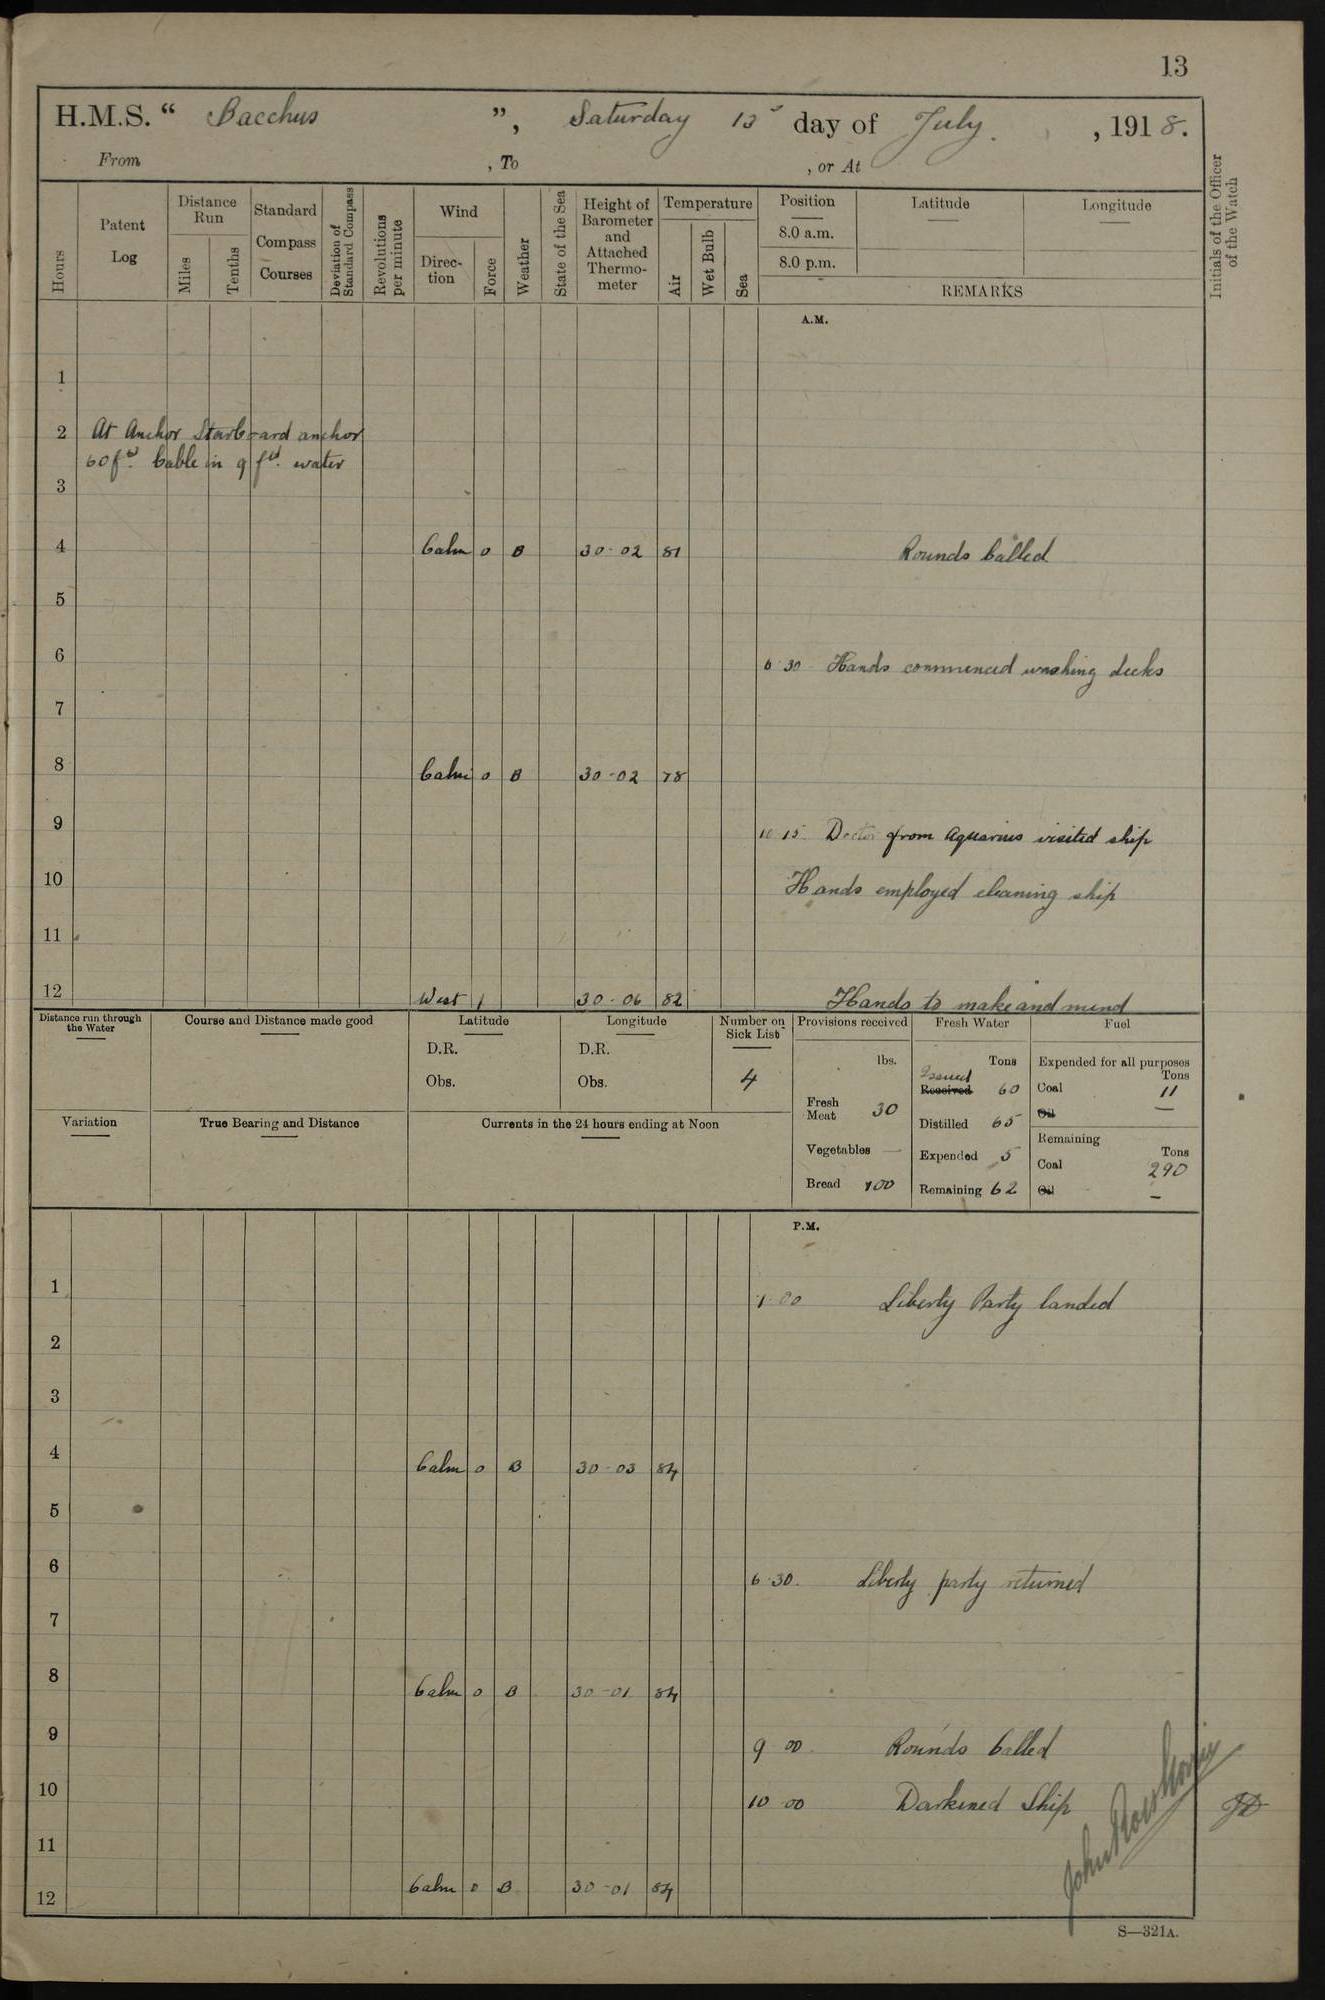 13
H.M.S. “ Bacchus ”, Saturday 13 day of July. , 1918.
From , To , or At
Hours
Patent Log
Distance Run
Miles
Tenths
Standard Compass Courses
Deviation of Standard Compass
Revolutions per minute
Wind
Direction
Force
Weather
State of the Sea
Height of Barometer and Attached Thermometer
Temperature
Air
Wet Bulb
Sea
Position
8.0 a.m.
8.0 p.m.
Latitude
Longitude
REMARKS
Initials of the Officer of the Watch
A.M.
1
2 At Anchor Starboard anchor
60 fms. Cable in 9 fms. water
3
4 Calm 0 B 30-02 81 Rounds Called
5
6 6 30 Hands commenced washing decks
7
8 Calm 0 B 30-02 78
9 10 15 Doctor from Aquarius visited ship
10 Hands employed cleaning ship
11
12 West 1 30-06 82 Hands to make and mend
Distance run through the Water
Course and Distance made good
Latitude
D.R.
Obs.
Longitude
D.R.
Obs.
Number on Sick List
4
Provisions received
lbs.
Fresh Meat 30
Vegetables —
Bread 100
Fresh Water
Tons
Issued
Received 60
Distilled 65
Expended 5
Remaining 62
Fuel
Expended for all purposes
Tons
Coal 11
Oil —
Remaining
Tons
Coal 290
Oil —
Variation
True Bearing and Distance
Currents in the 24 hours ending at Noon
P.M.
1 1 00 Liberty Party landed
2
3
4 Calm 0 B 30-03 84
5
6 6.30. Liberty party returned
7
8 Calm 0 B 30-01 84
9 9 00 Rounds Called
10 10 00 Darkened Ship
11
12 Calm 0 B 30-01 84
S—321A.